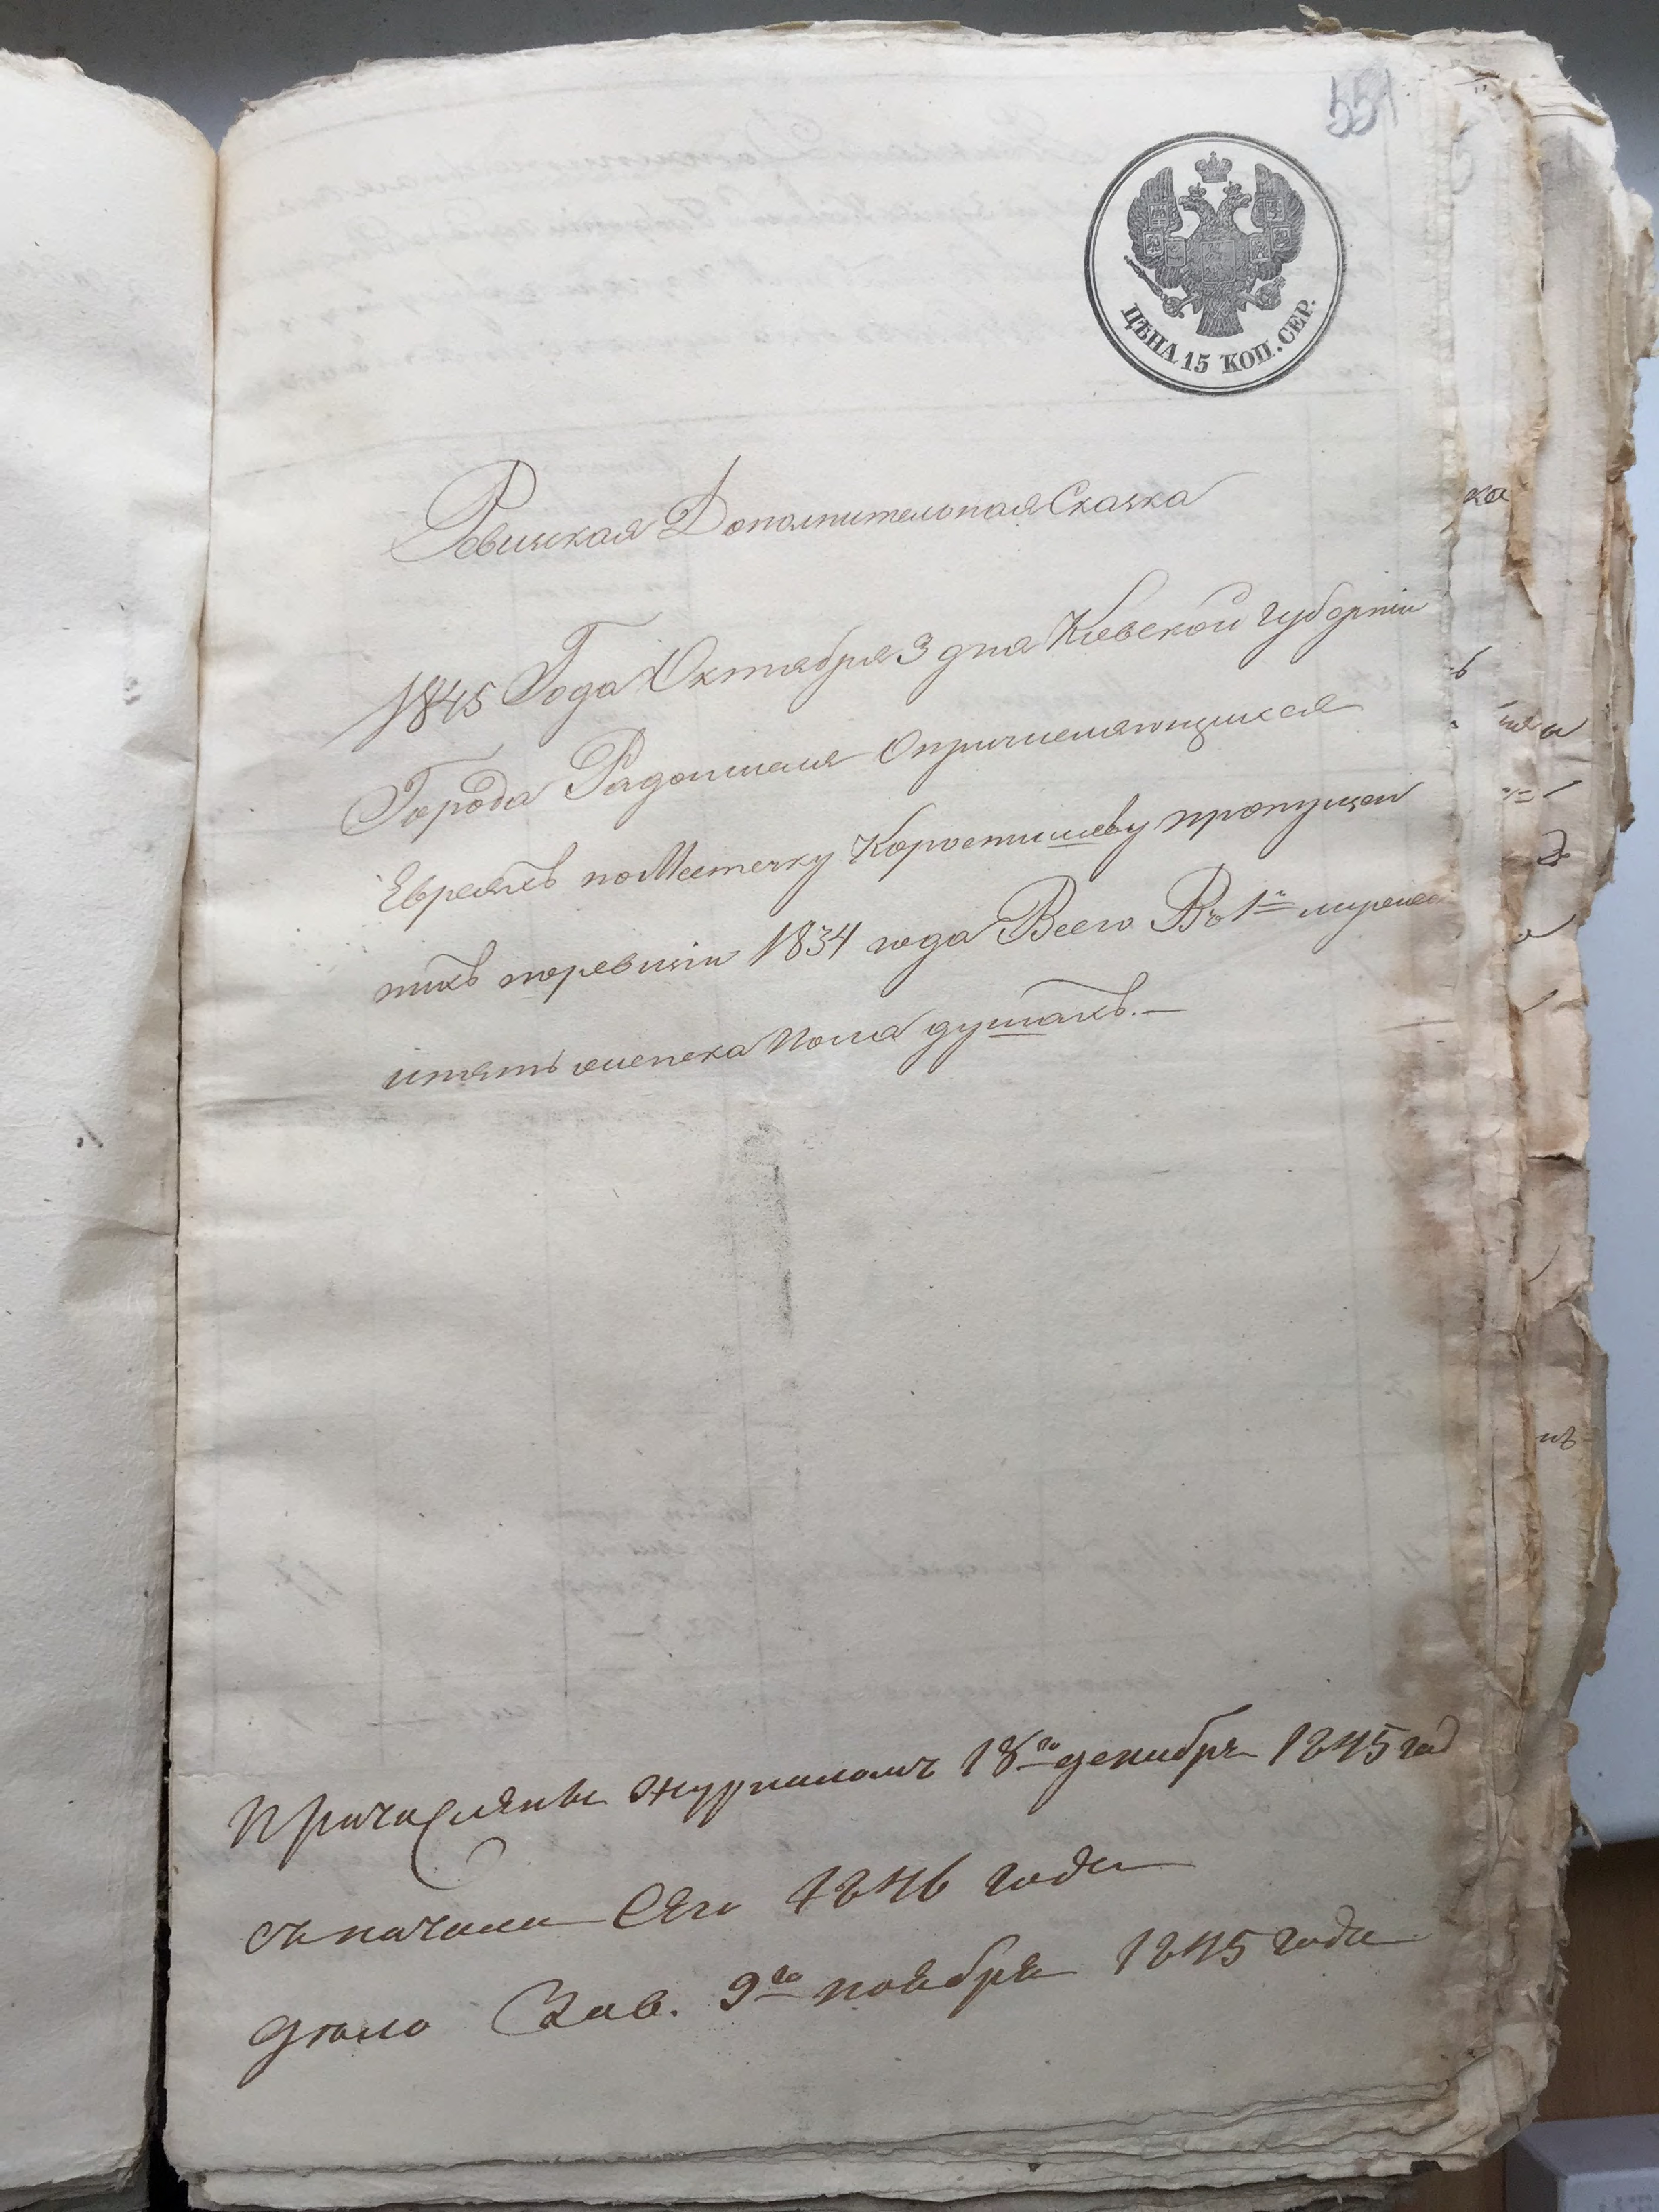 551
ЦѢНА 15 КОП. СЕР.
Ревизкая Дополнительная Сказка
1845 Года Октября 3 дня Киевской Губерніи
Города Радомисля Опричисляющихся
Евреяхъ по Местечку Коростишеву пропущен
ныхъ поревизіи 1834 года Всего Въ 1
женска Пола душахъ. —
Причислены журналомъ 18го декабря 1845 год
съ начала Сего 1846 года
дело Зав. 9го ноября 1845 года